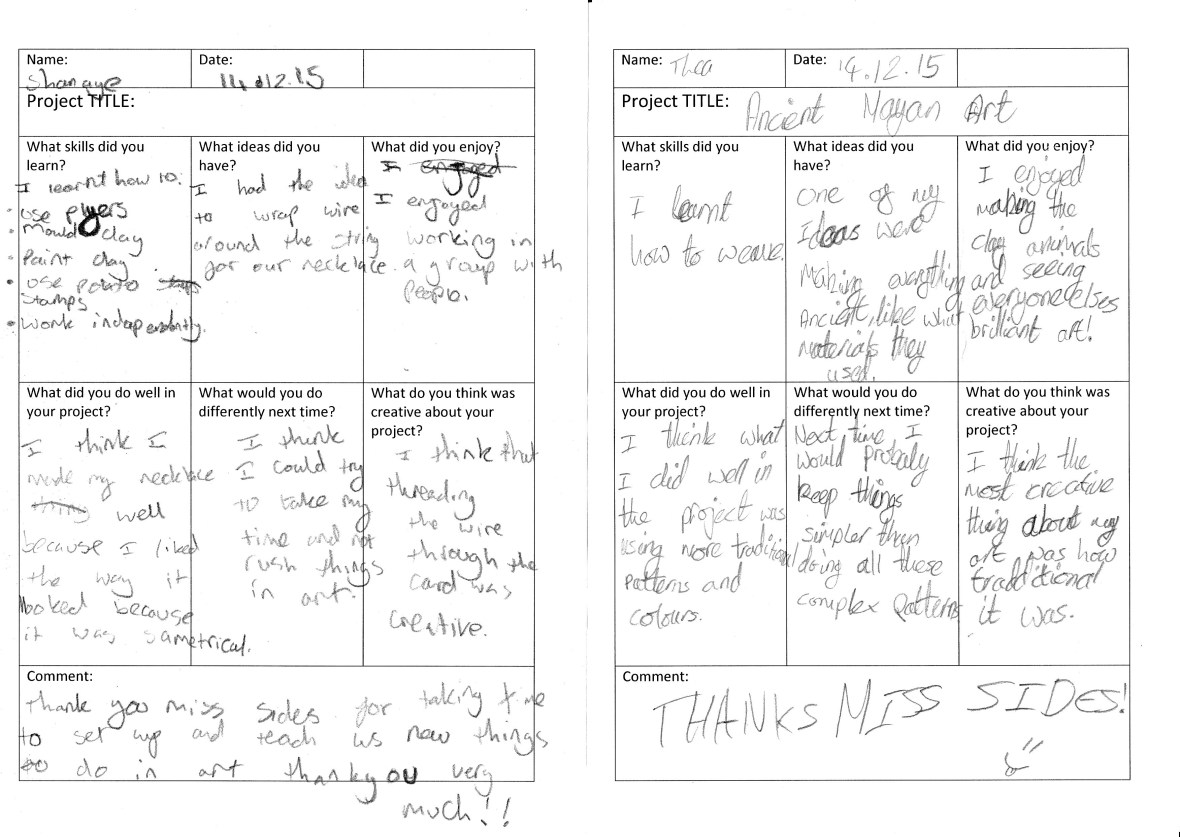 Name: Shanaye
Date: 14.12.15
Project TITLE:
What skills did you
learn?
I learnt how to:
• use plyers
• Mould clay
• Paint clay
• use potato
stamps
• work independently.
What ideas did you
have?
I had the idea
to wrap wire
around the string
for our necklace.
What did you enjoy?
I enjoyed
I enjoyed
working in
a group with
people.
What did you do well in
your project?
I think I
made my necklace
thing well
because I liked
the way it
looked because
it was sametrical.
What would you do
differently next time?
I think
I could try
to take my
time and not
rush things
in art.
What do you think was
creative about your
project?
I think that
threading
the wire
through the
card was
creative.
Comment:
thank you miss sides for taking time
to set up and teach us new things
to do in art thankyou very
much!!
Name: Thea
Date: 14.12.15
Project TITLE: Ancient Mayan Art
What skills did you
learn?
I learnt
how to weave.
What ideas did you
have?
One of my
Ideas were
Making everything
Ancient, like what
materials they
used.
What did you enjoy?
I enjoyed
making the
clay animals
and seeing
everyone elses
brilliant art!
What did you do well in
your project?
I think what
I did well in
the project was
using more traditional
patterns and
colours.
What would you do
differently next time?
Next time I
would probaly
keep things
simpler than
doing all these
complex patterns
What do you think was
creative about your
project?
I think the
most creative
thing about my
art was how
traditional
it was.
Comment:
THANKS MISS SIDES!